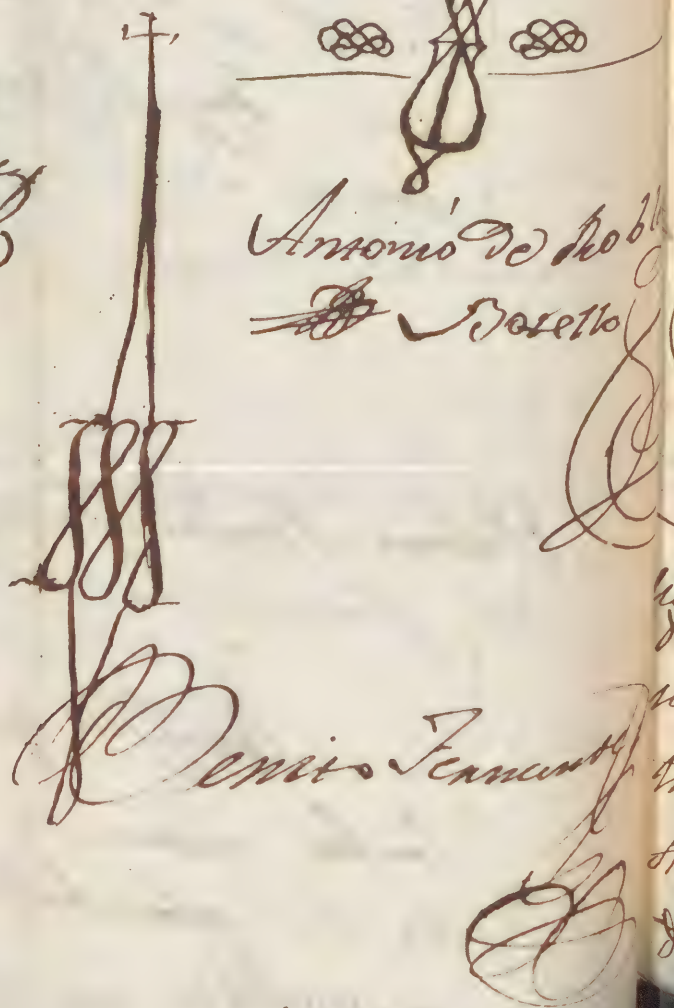 Antonio de Robl
Botello
Benito Fernand